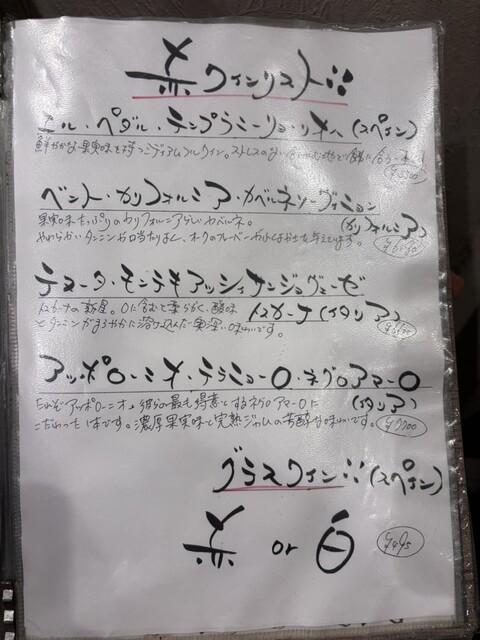 赤ワインリスト
エル・ペダル・テンプラニーリョ・リオハ (スペイン)
鮮やかな果実味を持つミディアムフルワイン。ストレスのない
ベント・カリフォルニア・カベルネソーヴィニョン
(カリフォルニア)
果実味たっぷりのカリフォルニアらしいカベルネ。
やわらかいタンニンや口当たりよく、オークのフレーバーがふくよかさを与えています。
テヌータ・モンテキアッシィサンジョヴェーゼ
トスカーナ(イタリア)
トスカーナの新星。口に含むと柔らかく、酸味
とタンニンがまろやかに溶け込んだ奥深い味わいです。
アッポローニオ・テラニョーロ・ネグロアマーロ
(イタリア)
アッポローニオ、彼らの最も得意とするネグロアマーロに
こだわった1本です。濃厚果実味と完熟ジャムの芳醇な味わいです。
¥7700
グラスワイン(スペイン)
赤 or 白
¥495